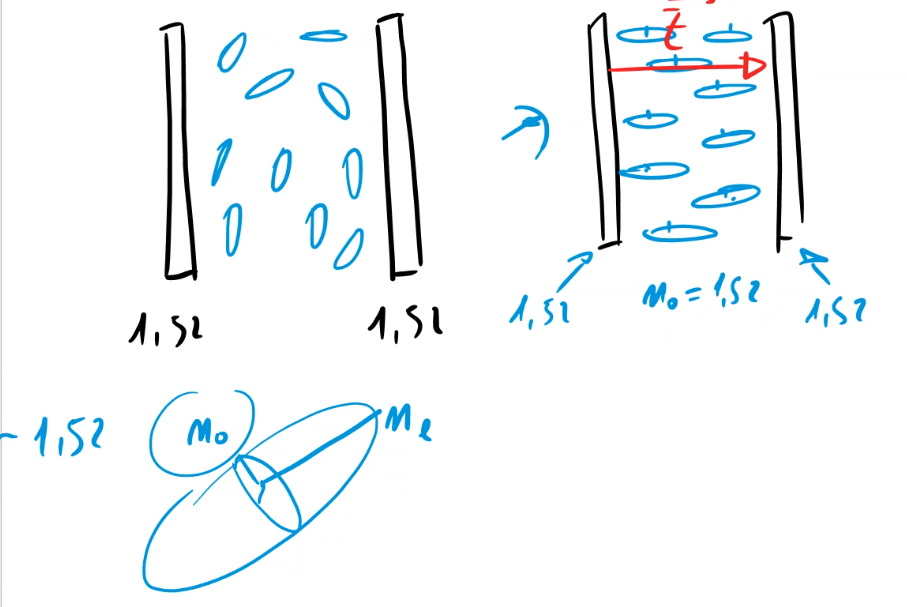 E
1,52 1,52
1,52 n₀ = 1,52 1,52
~ 1,52 n₀ nₑ